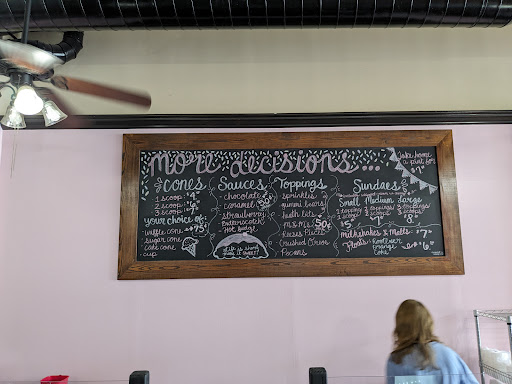 Mo're decisions...
take home
a pint for
Cones
1 scoop $4
2 scoop $6
3 scoop $7
your choice of:
waffle cone +75¢
sugar cone
cake cone
cup
Sauces
chocolate
caramel
strawberry
butterscotch
Hot fudge
Life is short
make it sweet!
Toppings
sprinkles
gummi bears
heath bits
M & M's
Reeses Pieces
Crushed Oreos
Pecans
Sundaes
Small Medium Large
1 topping 2 toppings 3 toppings
1 scoop 2 scoops 3 scoops
$5 $7 $8
milkshakes & Malts $7
Floats Rootbeer $6
orange
Coke